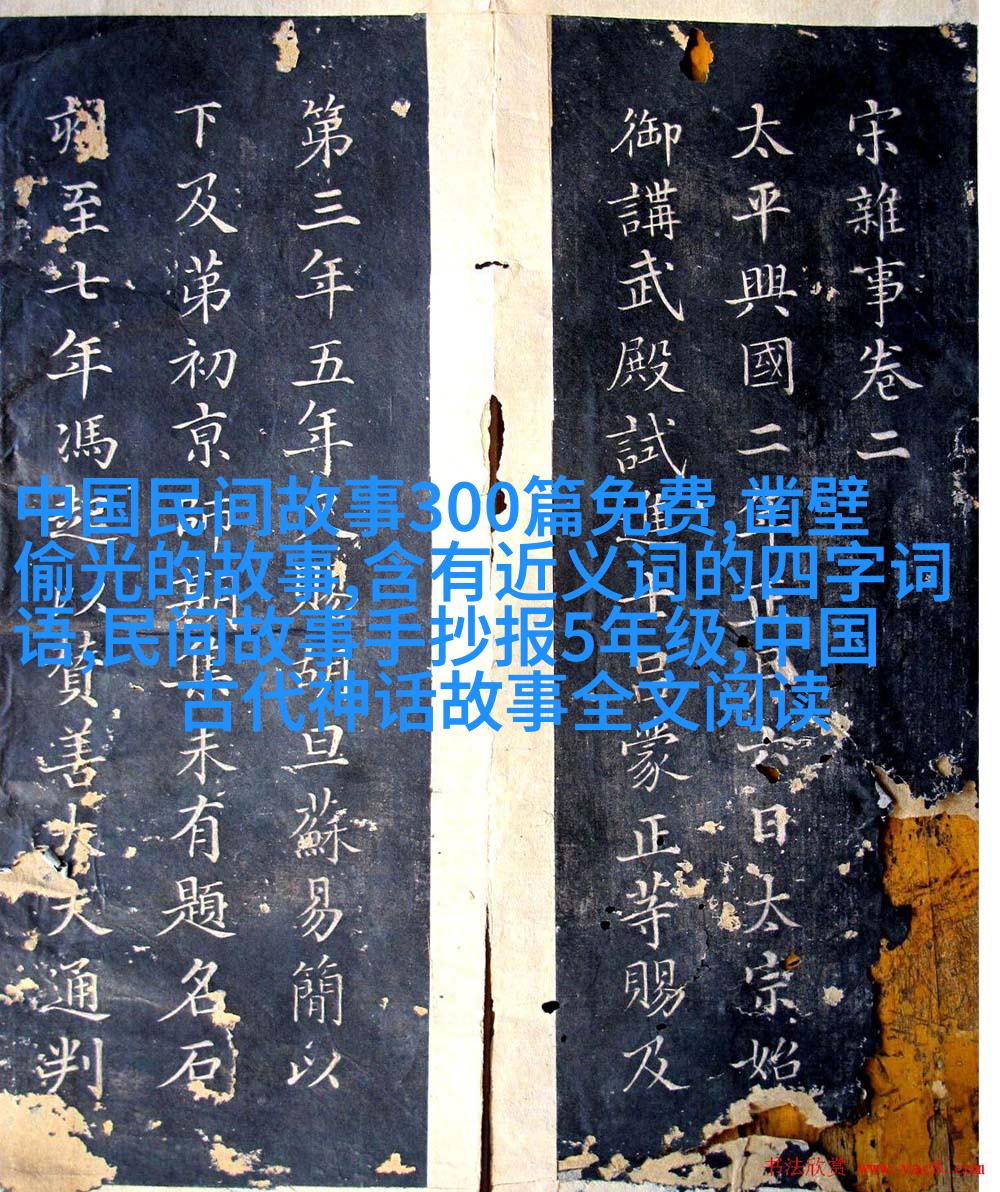 宋雜事卷二
太平興國二年正月六日太宗始
御講武殿試進士呂蒙正等賜及
第三年五年又賜胡旦蘇易簡以
下及苐初亰師期集未有題名石
刻至七年馮起以贊善大夫通判
中国民间故事300篇免费,凿壁
偷光的故事,含有近义词的四字词
语,民间故事手抄报5年级,中国
古代神话故事全文阅读
书法欣赏 www.yac8.com